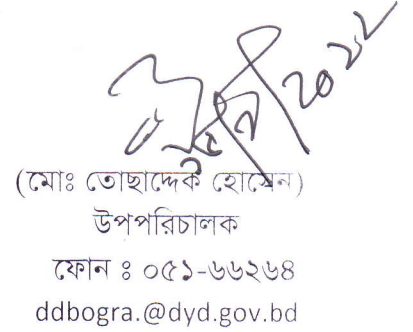 (মোঃ তোছাদ্দেক হোসেন)
উপপরিচালক
ফোন ঃ ০৫১-৬৬২৬৪
ddbogra.@dyd.gov.bd